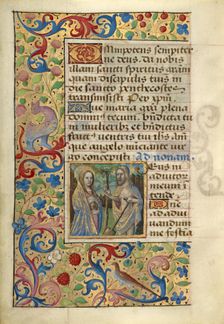 Omnipotens sempiter
ne deus. da nobis
illam sancti spiritus gram
quam discipulis tuis in
die sancto penthecostes
transmisisti Per xpm
maria gra plena
tecum. bndicta tu
in mulierib et bndictus
ventris tui ihs
angelo
concepisti ad nonam.
Eus in
adiutor
meum in
tende
ne ad adiu
uandum
me festina